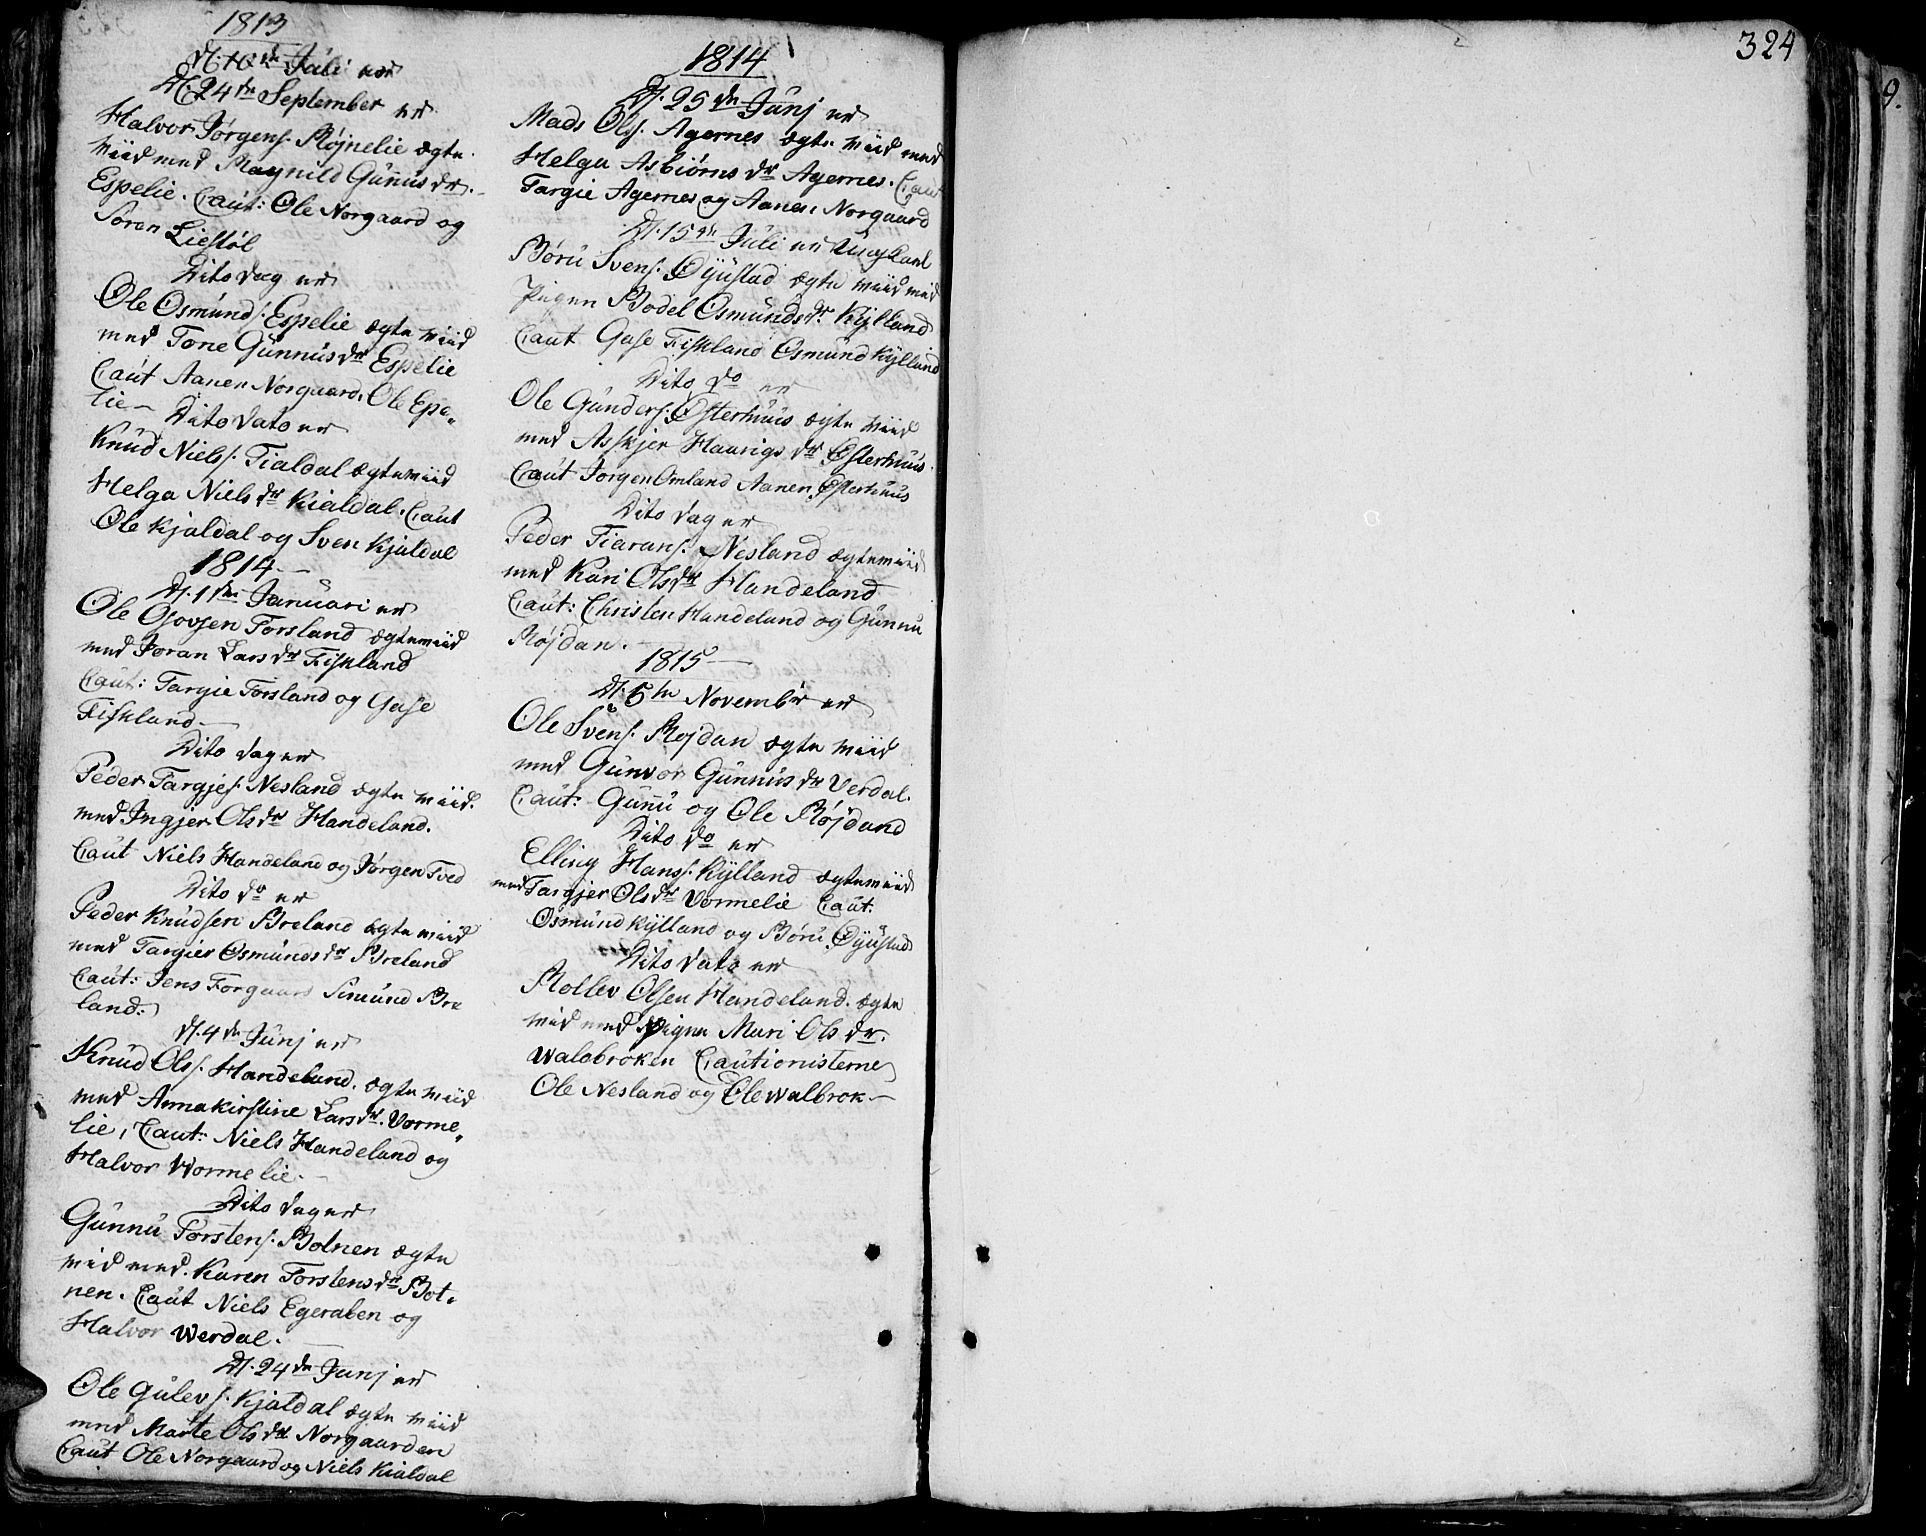 1813
D. 10de Juli er
D. 24de September er
Halvor Jørgens. Røjnelie ægte
viid med Magnild Gunnus dr.
Espelie. Caut: Ole Norgaard og
Søren Liestøl
Dito dag er
Ole Osmunds. Espelie ægte viid
med Tone Gunnus dr Espelie
Caut Aanen Norgaard. Ole Epe„
lie —
Dito Dato er
Knud Niels. Tialdal ægteviid
Helga Niels dr Kialdal. Caut
Ole Kjaldal og Sven Kjaldal
1814 —
D. 1de Januari er
Ole Govsen Torsland ægteviid
med Joran Lars dr Fiskland
Caut: Targie Torsland og Gase
Fiskland —
Dito dag er
Peder Targjes. Nesland ægte viid.
med Ingjer Ols dr Handeland.
Caut Niels Handeland og Jørgen Tved
Dito do er
Peder Knudsen Breland ægte viid
med Targier Osmunds dr Breland
Caut: Jens Forgaard Simund Bre
land.
D. 4de Junj er
Knud Ols. Handeland. ægte viid
med Annakirstine Lars dr. Vorme„
lie, Caut: Niels Handeland og
Halvor Wormelie. —
Dito dag er
Gunnu Torstens. Botnen ægte
viid med. Karen Torstens dr Bot„
nen. Caut Niels Egeraben og
Halvor Werdal. —
D. 24de Junj er
Ole Gulevs. Kjaldal ægte viid
med Marte Ols dr Norgaarden
Caut Ole Norgaard og Niels Kialdal
1814
D. 25de Junj er
Mads Ols. Agernes ægte viid med
Helga Asbiørns dr Agernes. Caut
Targie Agernes og Aanen Norgaard
D. 15de Juli er Ungkarl
Børu Svens. Øyustad ægte viid med
Pigen Bodel Osmunds dr. Kylland
Caut Gase Fiskland Osmund Kylland
Dito do er
Ole Gunders. Østerhuus ægte viid
med Asskjer Haavigs dr Østerhuus.
Caut Jorgen Omland Aanen Østerhuus
Dito dag er
Peder Tiarans. Nesland ægteviid
med Kari Ols dr Handeland
Caut: Christen Handeland og Gunnu
Røjdan.
1815 —
D. 5te Novembr er
Ole Svens. Rojdan ægte viid
med Gunvor Gunnus dr Verdal.
Caut: Gunu og Ole Røjdand
Dito do er
Elling Hans. Kylland ægteviid
med Targjer Ols dr Vormelie Caut:
Osmund Kylland og Børu Øyustad
Dito Dato er
Rollev Olsen Handeland. ægte
viid med Pigen Mari Ols dr.
Walsbroken Cautionisterne
Ole Nesland og Ole Walbrok —
324
9.